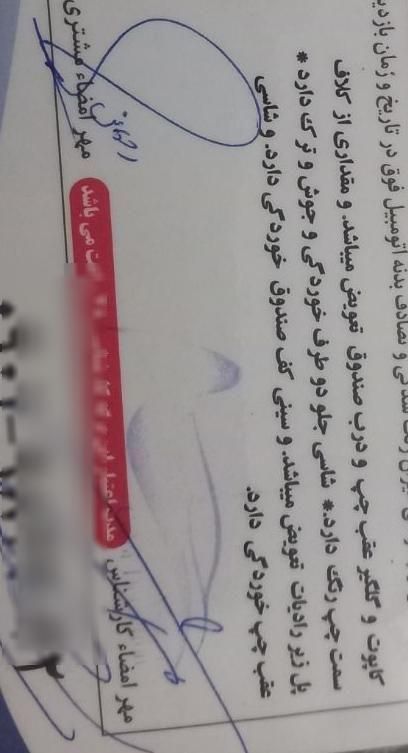 رنگ شدگی و تصادف بدنه اتومبیل فوق در تاریخ و زمان بازدید
کاپوت و گلگیر عقب چپ و درب صندوق تعویض میباشد. و مقداری از کلاف
سمت چپ رنگ دارد.* شاسی جلو دو طرف خوردگی و جوش و ترک دارد *
پل زیر رادیات تعویض میباشد. و سینی کف صندوق خوردگی دارد. و شاسی
عقب چپ خوردگی دارد.
مهر امضاء کارشناس
مدت اعتبار
ت می باشد
مهر امضاء مشتری